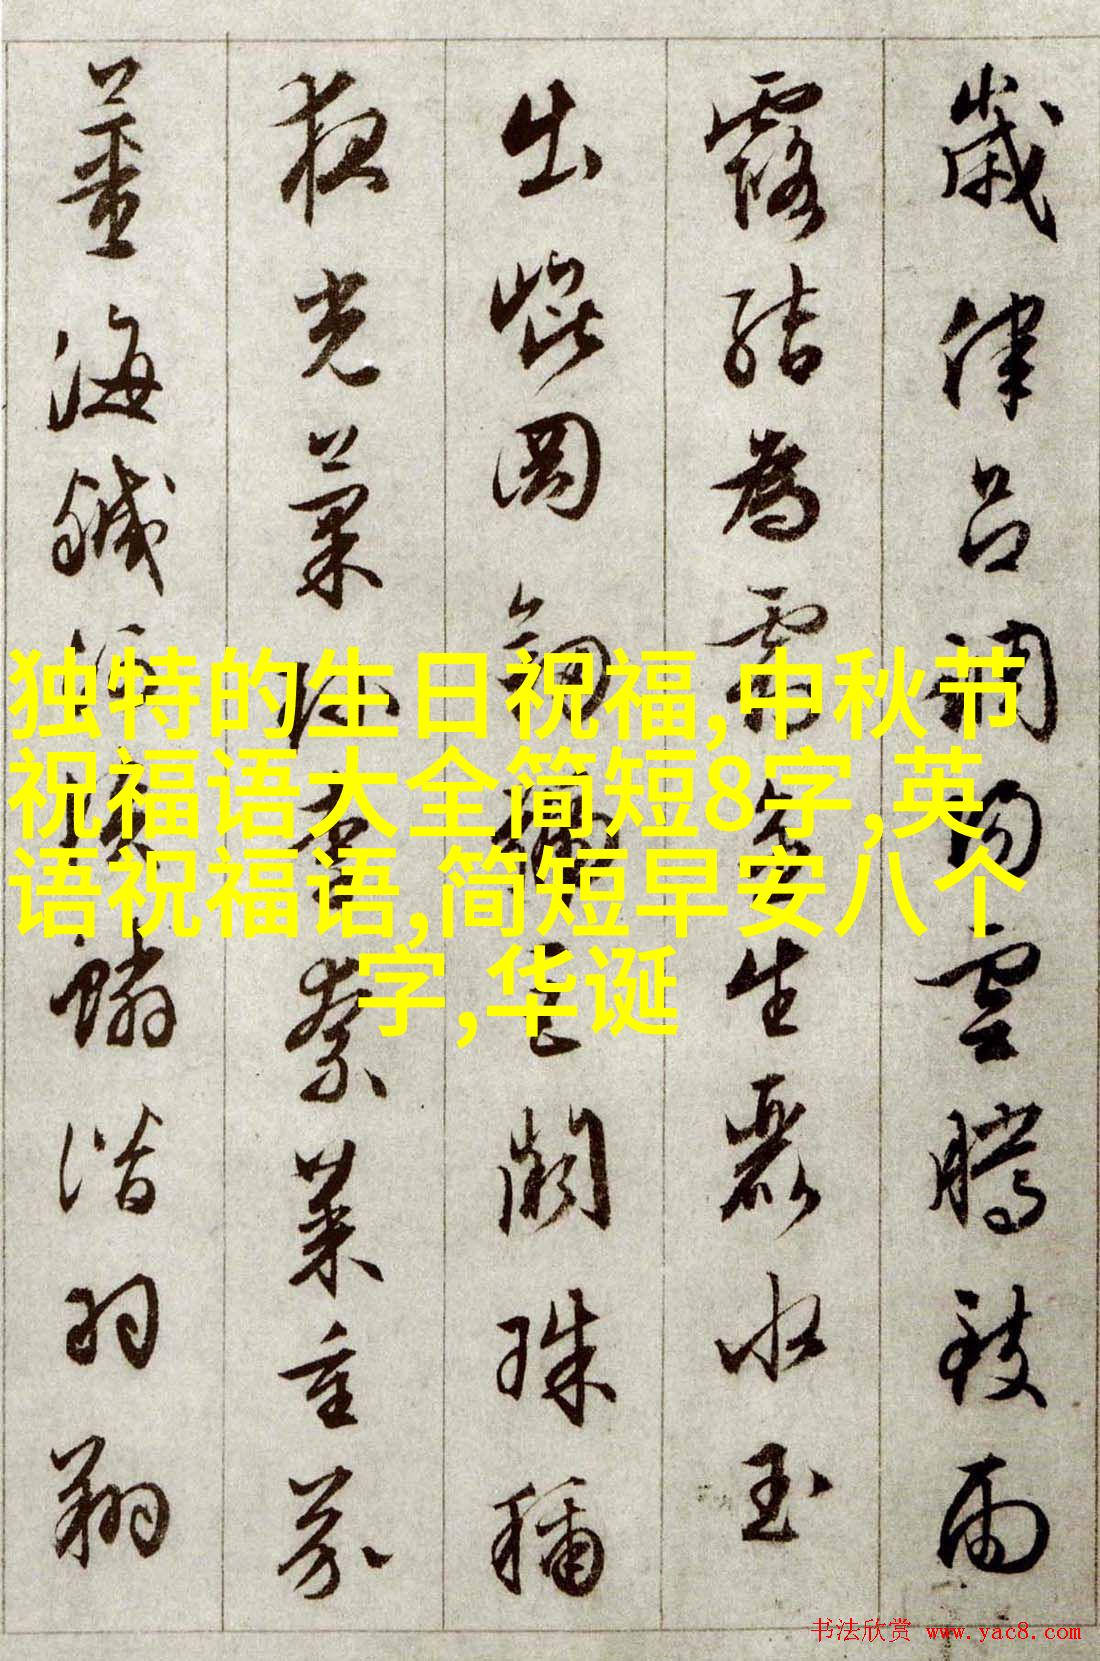 歲律呂調陽雲騰致雨
露結為霜金生麗水玉
出崐岡劍號巨闕珠稱
夜光菓珍李柰菜重芥
薑海鹹河淡鱗潛羽翔
独特的生日祝福,中秋节
祝福语大全简短8字,英
语祝福语,简短早安八个
字,华诞
书法欣赏 www.yac8.com